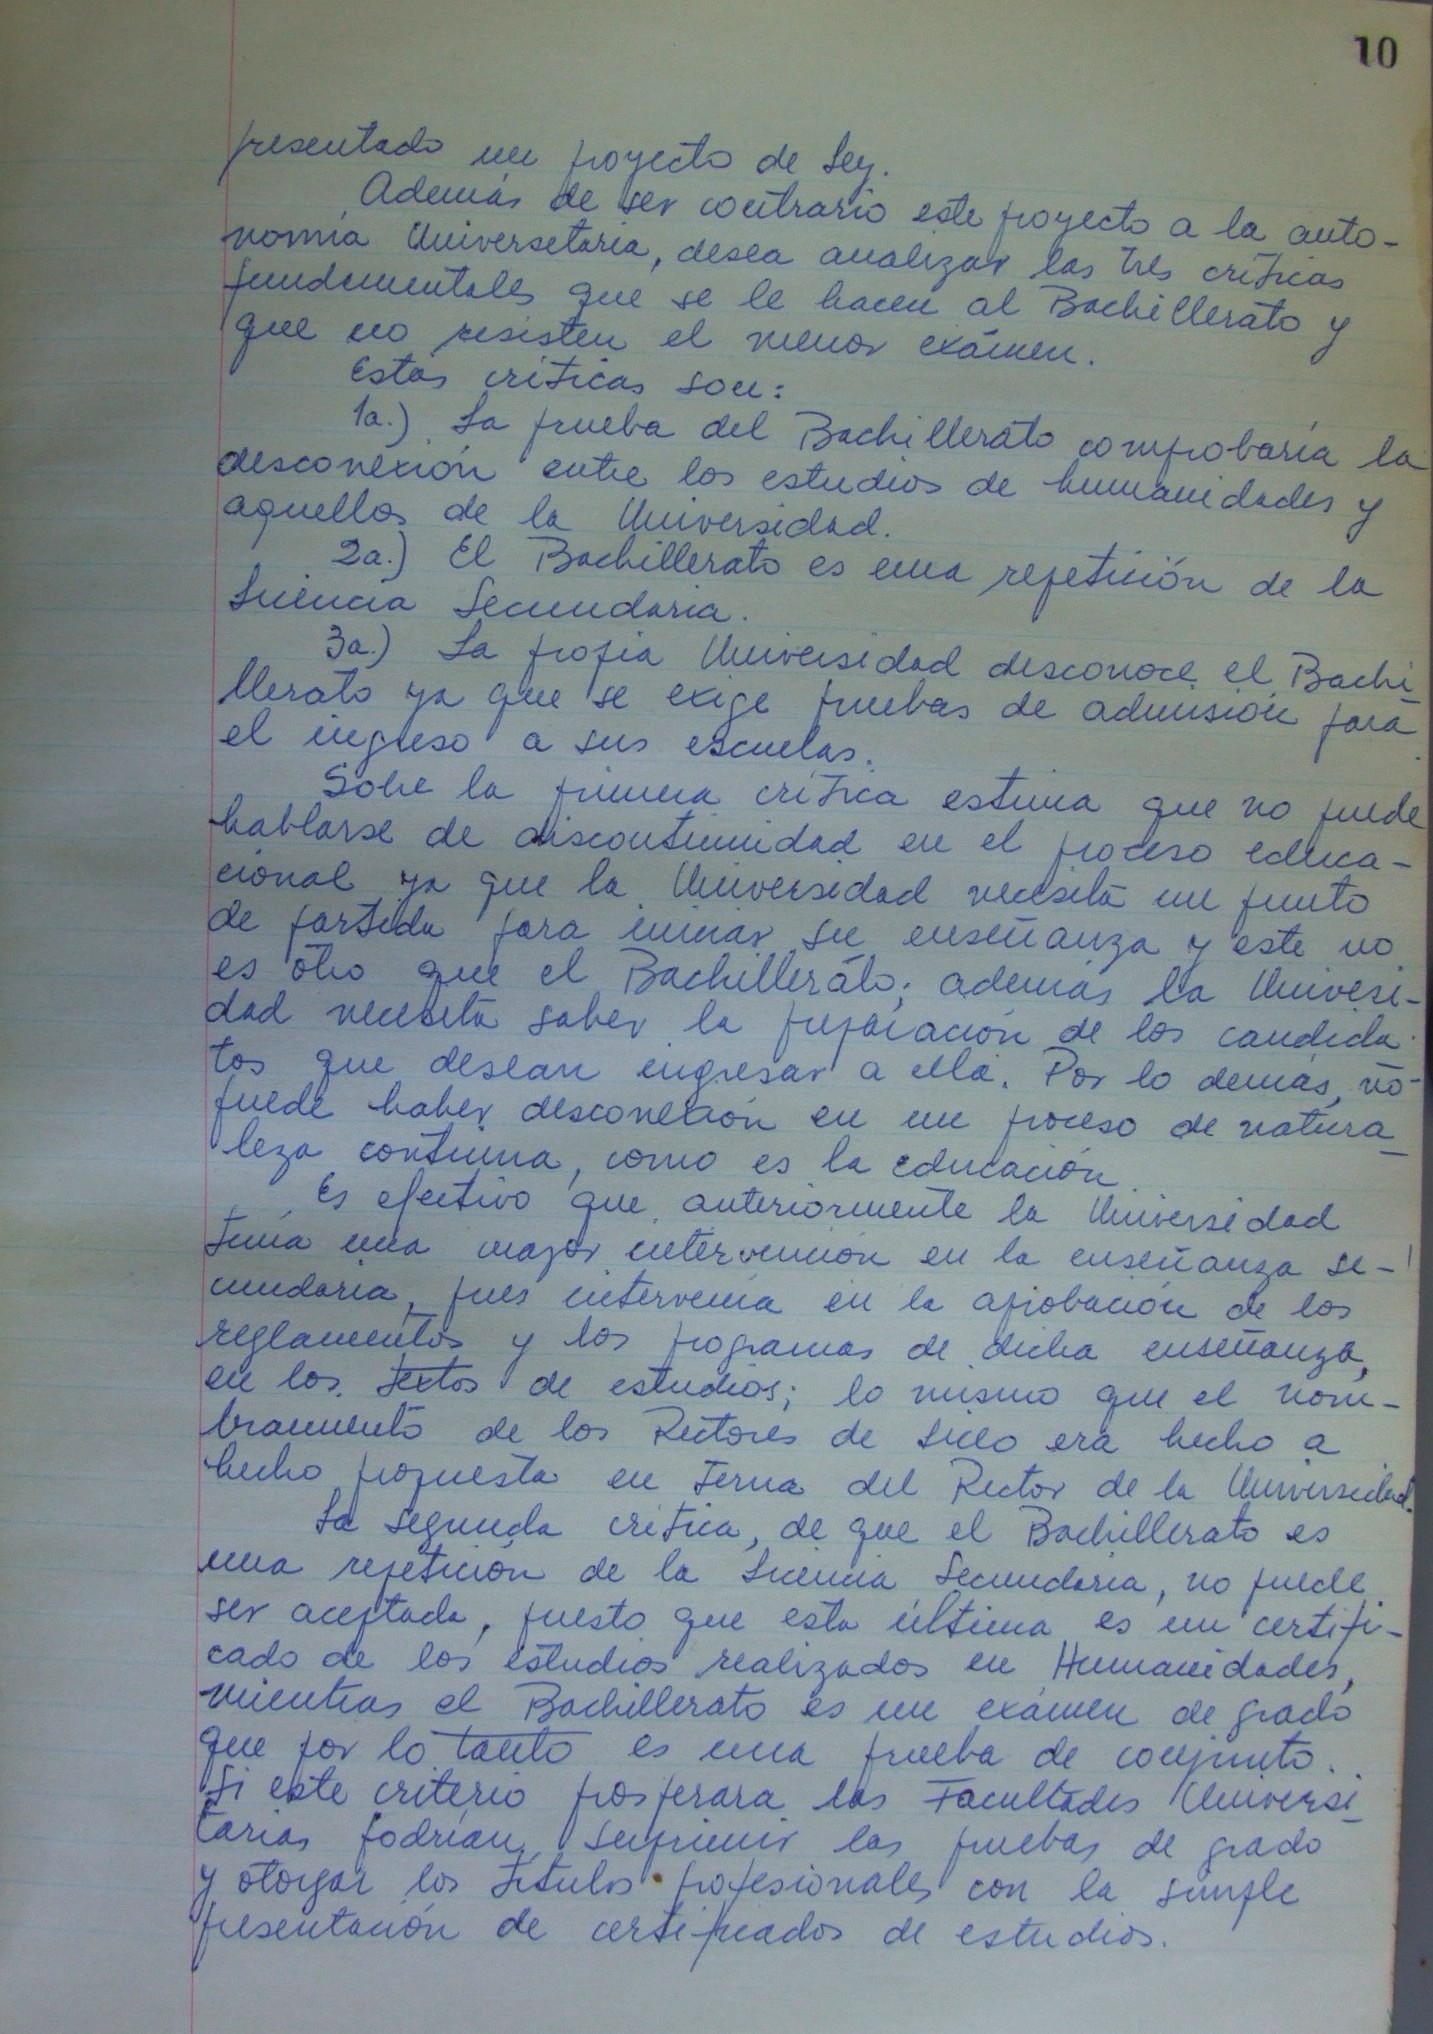 10
presentado un proyecto de Ley.
Además de ser contrario este proyecto a la auto-
nomía Universitaria, desea analizar las tres críticas
fundamentales que se le hacen al Bachillerato y
que no resisten el menor exámen.
Estas críticas son:
1a.) La prueba del Bachillerato comprobaría la
desconexión entre los estudios de humanidades y
aquellos de la Universidad.
2a.) El Bachillerato es una repetición de la
Licencia Secundaria.
3a.) La propia Universidad desconoce el Bachi-
llerato ya que se exige pruebas de admisión para
el ingreso a sus escuelas.
Sobre la primera crítica estima que no puede
hablarse de discontinuidad en el proceso educa-
cional ya que la Universidad necesita un punto
de partida para iniciar su enseñanza y este no
es otro que el Bachillerato; además la Universi-
dad necesita saber la preparación de los candida-
tos que desean ingresar a ella. Por lo demás, no
puede haber desconexión en un proceso de natura-
leza continua, como es la educación.
Es efectivo que anteriormente la Universidad
tenía una mayor intervención en la enseñanza se-
cundaria, pues intervenía en la aprobación de los
reglamentos y los programas de dicha enseñanza,
en los textos de estudios; lo mismo que el nom-
bramiento de los Rectores de Liceo era hecho a
hecho propuesta en terna del Rector de la Universidad.
La segunda crítica, de que el Bachillerato es
una repetición de la Licencia Secundaria, no puede
ser aceptada, puesto que esta última es un certifi-
cado de los estudios realizados en Humanidades,
mientras el Bachillerato es un exámen de grado
que por lo tanto es una prueba de conjunto.
Si este criterio prosperara las Facultades Universi-
tarias podrían suprimir las pruebas de grado
y otorgar los títulos profesionales con la simple
presentación de certificados de estudios.